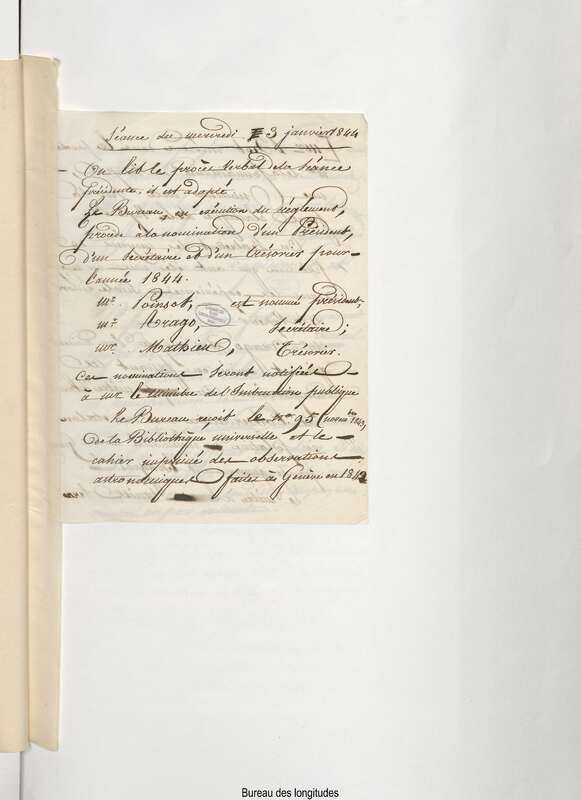 Séance du mercredi 3 janvier 1844
On lit le procès Verbal de la séance
précédente, il est adopté.
Le Bureau, en exécution du règlement,
procède à la nomination d'un Président,
d'un secrétaire et d'un trésorier pour
l'année 1844.
mr. Poinsot, est nommé président,
mr. Arago, Secrétaire;
mr. Mathieu, Trésorier.
ces nominations seront notifiées
à mr le ministre de l'Instruction publique
Le Bureau reçoit le no 95 (novembre 1843)
de la Bibliothèque universelle et le
cahier imprimé des observations
astronomiques faites à Genève en 1842
Bureau des longitudes